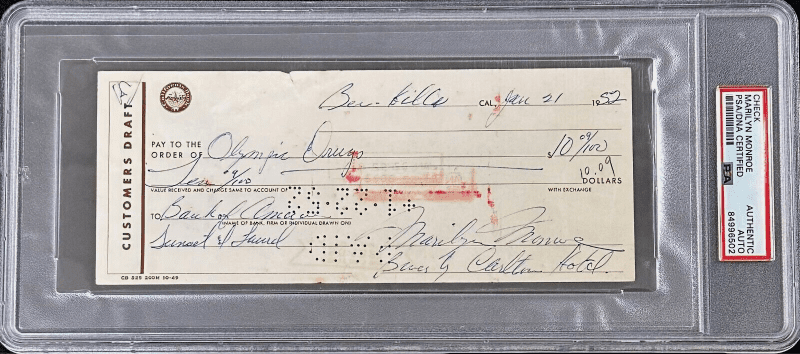 CUSTOMERS DRAFT
Bev. Hills CAL, Jan 21 1952
PAY TO THE
ORDER OF Olympic Drugs $10 09/100
Ten 09/100 10.09
DOLLARS
VALUE RECEIVED AND CHARGE SAME TO ACCOUNT OF WITH EXCHANGE
TO Bank of America
(NAME OF BANK, FIRM OR INDIVIDUAL DRAWN ON)
Sunset & Laurel
Marilyn Monroe
Beverly Carlton Hotel.
CB 525 200M 10-49
CHECK
MARILYN MONROE
PSA/DNA CERTIFIED
PSA
AUTHENTIC
AUTO
84996502